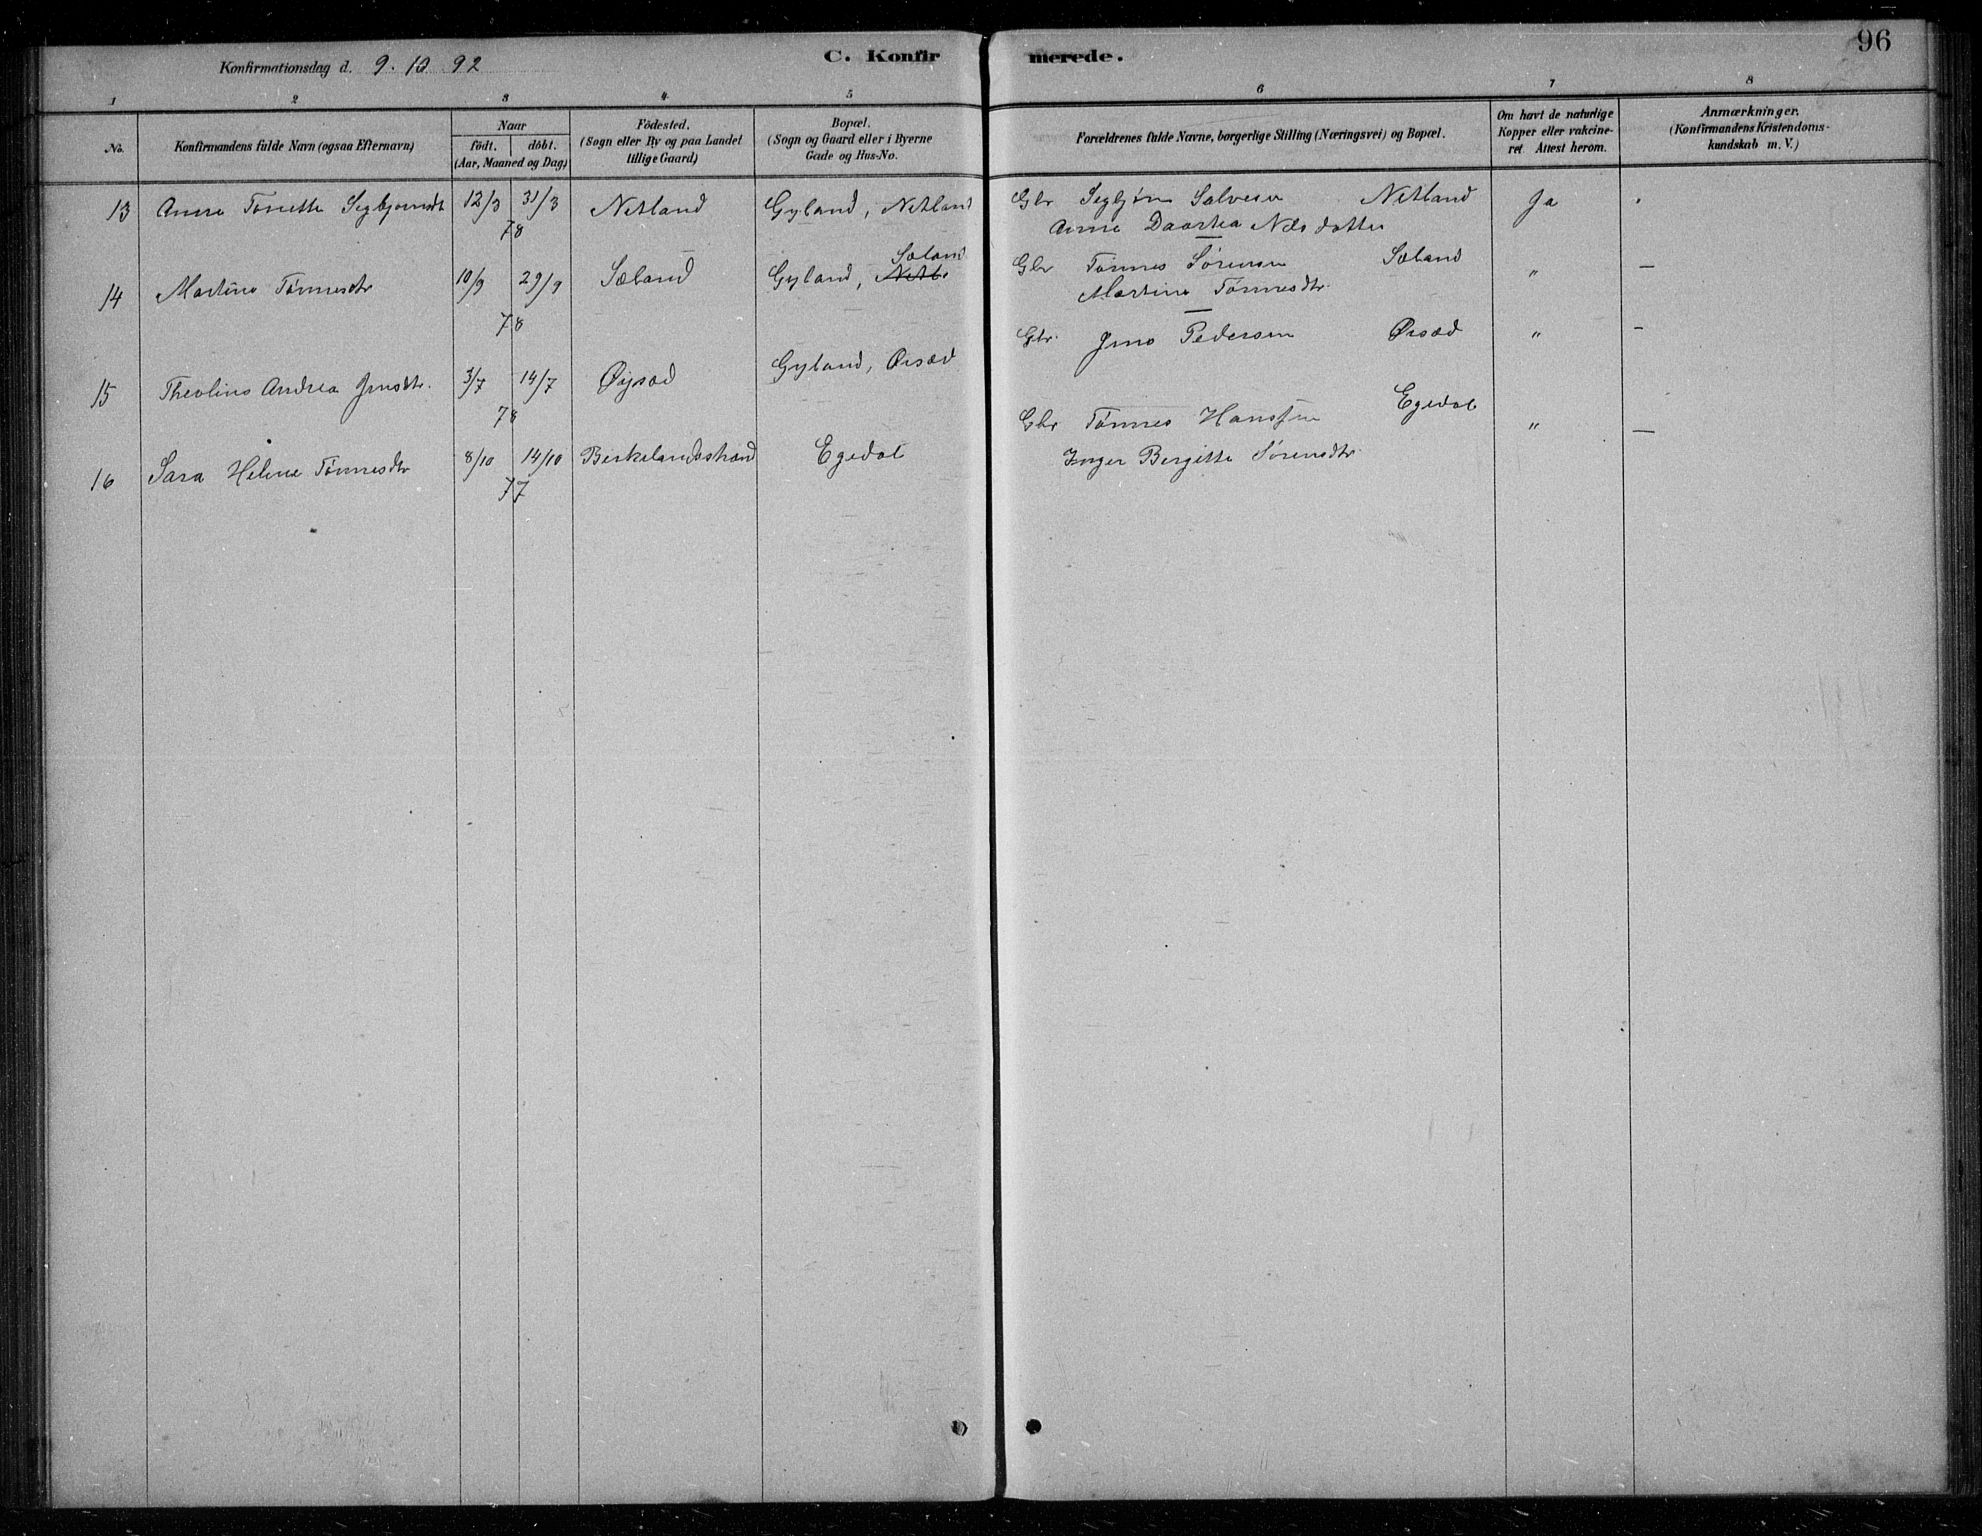 96
Konfirmationsdag d. 9. 10 92
C. Konfirmerede.
1 2 3 4 5 6 7 8
No.
Konfirmandens fulde Navn (ogsaa Efternavn)
Naar
födt. döbt.
(Aar, Maaned og Dag)
Födested.
(Sogn eller By og paa Landet
tillige Gaard)
Bopæl.
(Sogn og Gaard eller i Byerne
Gade og Hus-No.
Forældrenes fulde Navne, borgerlige Stilling (Næringsvei) og Bopæl.
Om havt de naturlige
Kopper eller vakcine-
ret. Attest herom.
Anmærkninger.
(Konfirmandens Kristendoms-
kundskab m. V.)
13 Anna Tonette Segbjørnsdt 12/3 31/3 Netland Gyland, Netland Gbr Segbjørn Salvesen Netland Ja
78 Anne Daartea Nilsdatter
Sæland
14 Martine Tønnesdtr 10/9 29/9 Sæland Gyland, Netl. Gbr Tønnes Sørensen Sæland " —
78 Martine Tønnesdtr.
15 Theoline Andrea Jensdtr. 3/7 14/7 Øysæd Gyland, Øisæd Gbr. Jens Pedersen Øisæd " —
78
16 Sara Helene Tønnesdtr 8/10 14/10 Birkelandsstrand Egedal Gbr Tønnes Hanssen Egedal " —
77 Inger Bergitte Sørensdtr.